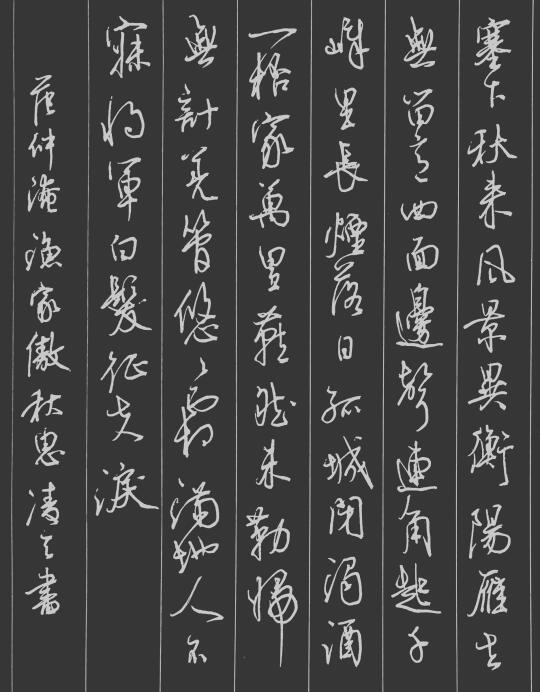 塞下秋来風景異衡陽雁去
無留意四面邊聲連角起千
嶂里長煙落日孤城閉濁酒
一桮家萬里燕然未勒歸
無計羌管悠々霜滿地人不
寐将軍白髮征夫淚
范仲淹漁家傲秋思書